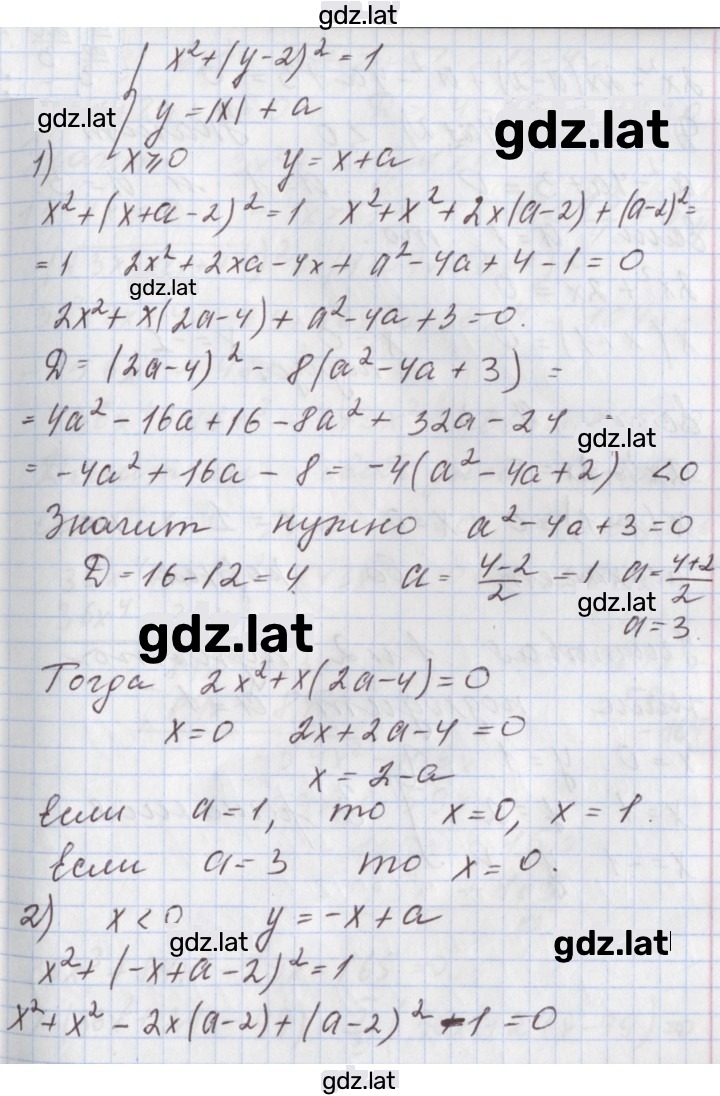 gdz.lat
x² + (y-2)² = 1
gdz.lat
y = |x| + a
gdz.lat
1) x ≥ 0 y = x + a
x² + (x+a-2)² = 1 x² + x² + 2x(a-2) + (a-2)² =
= 1 2x² + 2xa - 4x + a² - 4a + 4 - 1 = 0
gdz.lat
2x² + x(2a-4) + a² - 4a + 3 = 0.
D = (2a-4)² - 8(a² - 4a + 3) =
= 4a² - 16a + 16 - 8a² + 32a - 24
gdz.lat
= -4a² + 16a - 8 = -4(a² - 4a + 2) < 0
Значит нужно a² - 4a + 3 = 0
D = 16 - 12 = 4 a = (4-2)/2 = 1 a = (4+2)/2
gdz.lat
a = 3.
gdz.lat
Тогда 2x² + x(2a-4) = 0
x = 0 2x + 2a - 4 = 0
x = 2 - a
Если a = 1, то x = 0, x = 1.
Если a = 3 то x = 0.
2) x < 0 y = -x + a
gdz.lat
gdz.lat
x² + (-x+a-2)² = 1
x² + x² - 2x(a-2) + (a-2)² - 1 = 0
gdz.lat